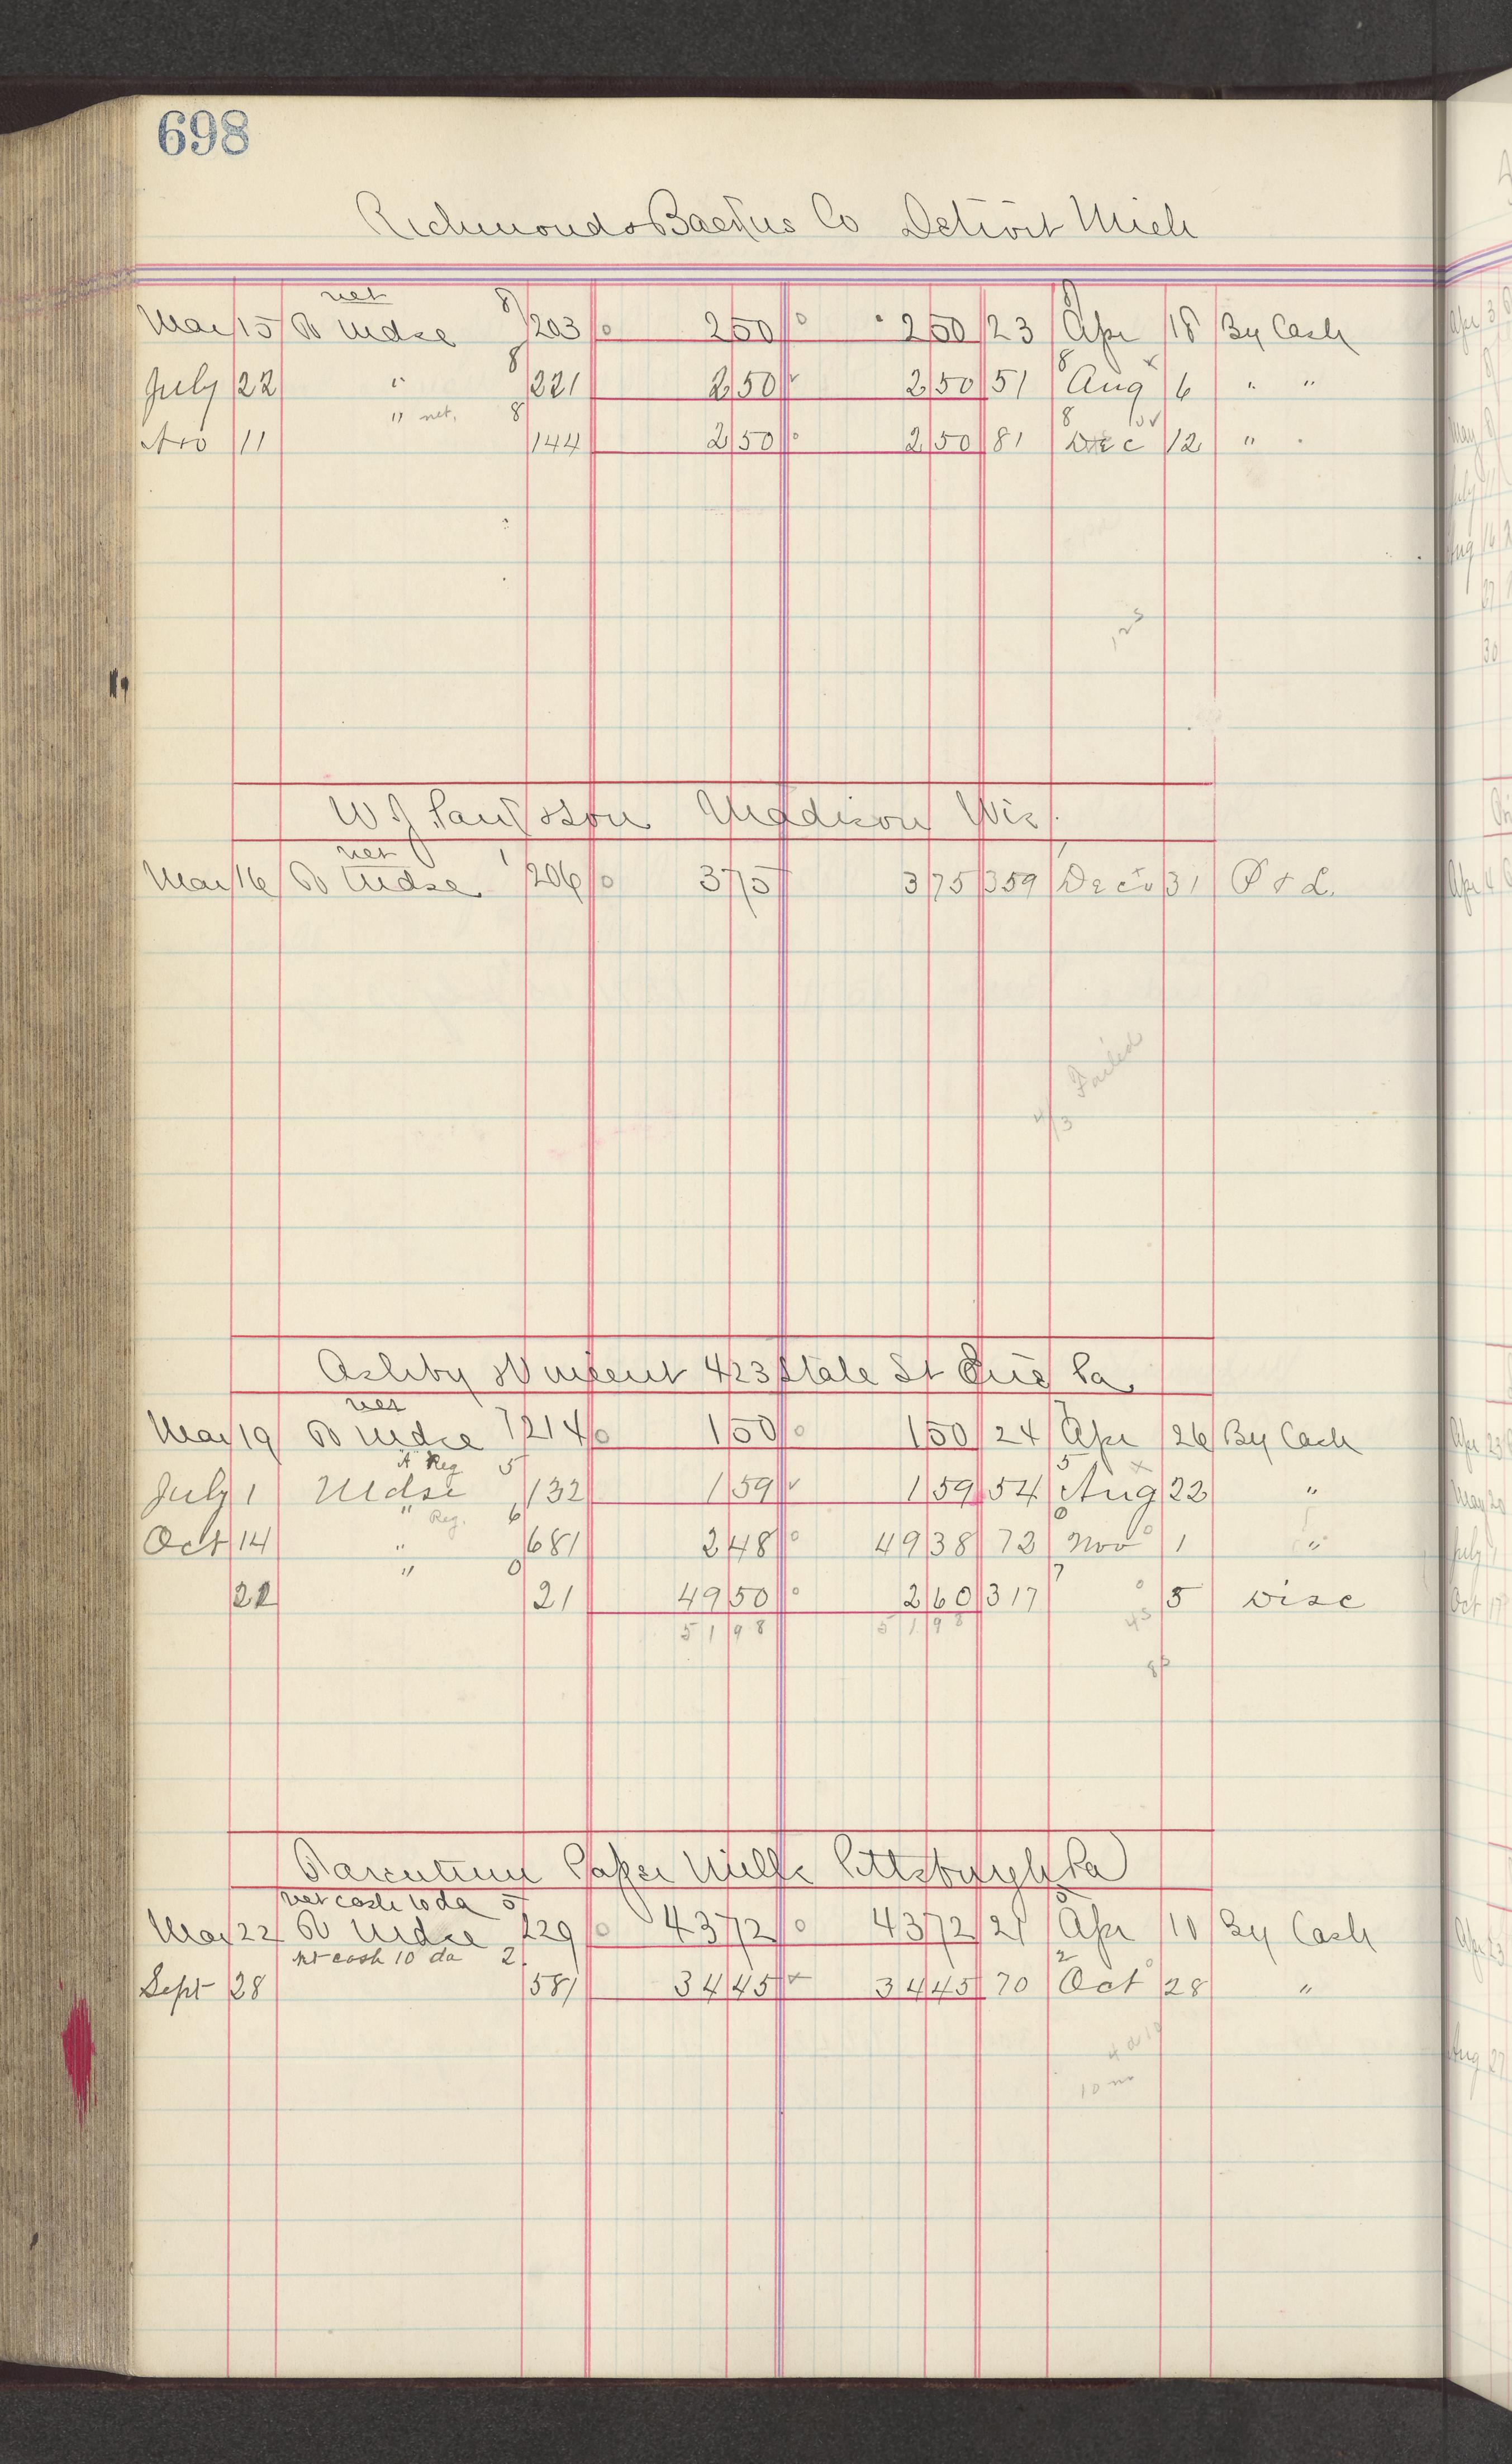 698
Richmond & Backus Co Detroit Mich
net 8
Mar 15 To Mdse 203 0 2 50 0 2 50 23 Apr 18 By Cash
8 8 x
July 22 " 221 2 50 ✓ 2 50 51 Aug 6 " "
" net. 8 8
Nov 11 144 2 50 0 2 50 81 Dec 12 "
W J Madison Wis.
net 1
Mar 16 To Mdse 206 0 3 75 3 75 359 Dec 31 P & L
Failed
4/3
Ashby & Vincent 423 State St Erie Pa
net
Mar 19 To Mdse 7 214 0 1 50 0 1 50 24 Apr 26 By Cash
Reg 5 5 x
July 1 Mdse 132 1 59 ✓ 1 59 54 Aug 22 "
" Reg. 6 0
Oct 14 " 681 2 48 0 49 38 72 Nov 1 "
" 0 7
22 21 49 50 0 2 60 317 5 Disc
51 98 51 98
Paper Mills Pittsburgh Pa
net cash 10 da 5 5
Mar 22 To Mdse 229 0 43 72 0 43 72 21 Apr 10 By Cash
nt cash 10 da 2 2
Sept 28 581 34 45 ✓ 34 45 70 Oct 28 "